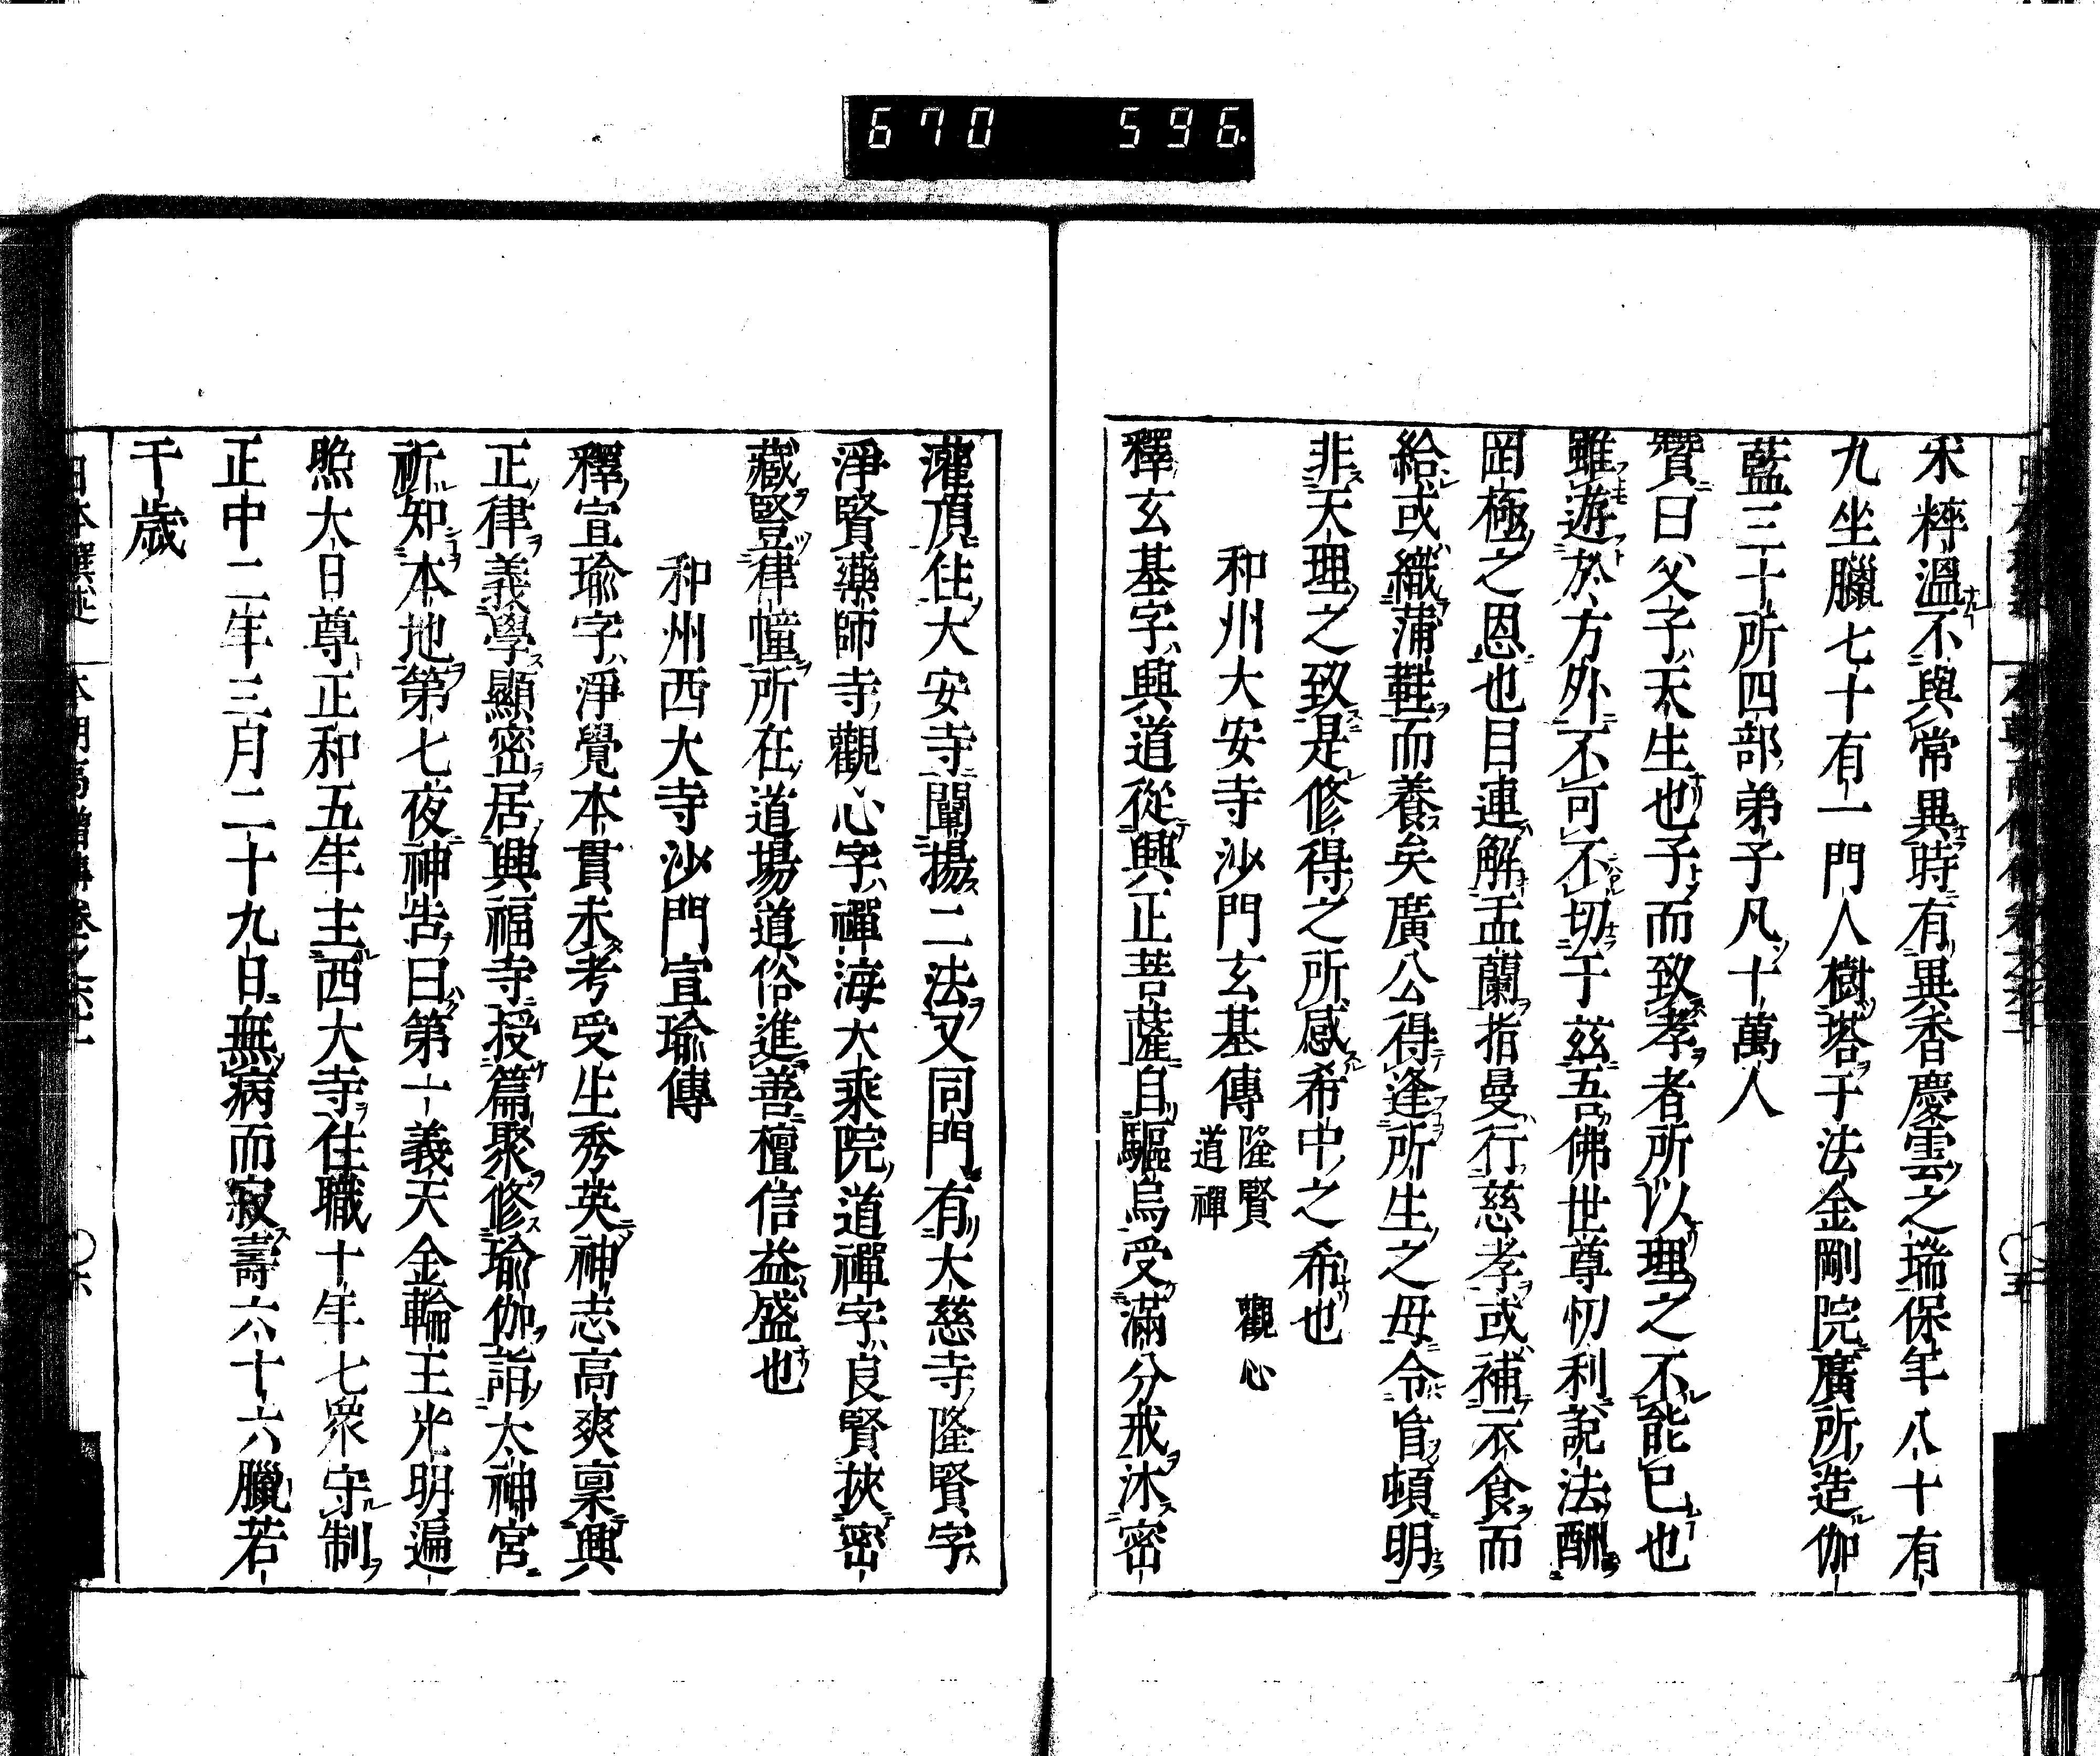 670 596
釆粹溫不與常異時有異香慶雲之瑞保年八十有
九坐臘七十有一門人樹塔于法金剛院廣所造伽
藍三十所四部弟子凡十萬人
賛曰父子天生也子而致孝者所以理之不能已也
雖遊於方外不可不切于茲吾佛世尊忉利說法酬
罔極之恩也目連解盂蘭指曼行慈孝或補衣食而
給或織蒲鞋而養矣廣公得逢所生之母令盲頓明
非天理之致是修得之所感希中之希也
和州大安寺沙門玄基傳 隆賢 觀心 道禪
釋玄基字興道從興正菩薩自驅烏受滿分戒沐密
灌頂住大安寺闡揚二法又同門有大慈寺隆賢字
淨賢藥師寺觀心字禪海大乘院道禪字良賢挾密
藏豎律幢所在道場道俗進善檀信益盛也
和州西大寺沙門宣瑜傳
釋宣瑜字淨覺本貫未考受生秀英神志高爽稟興
正律義學顯密居興福寺授篇聚修瑜伽詣太神宮
祈知本地第七夜神告曰第一義天金輪王光明遍
照大日尊正和五年主西大寺住職十年七衆守制
正中二年三月二十九日無病而寂壽六十六臘若
干歲